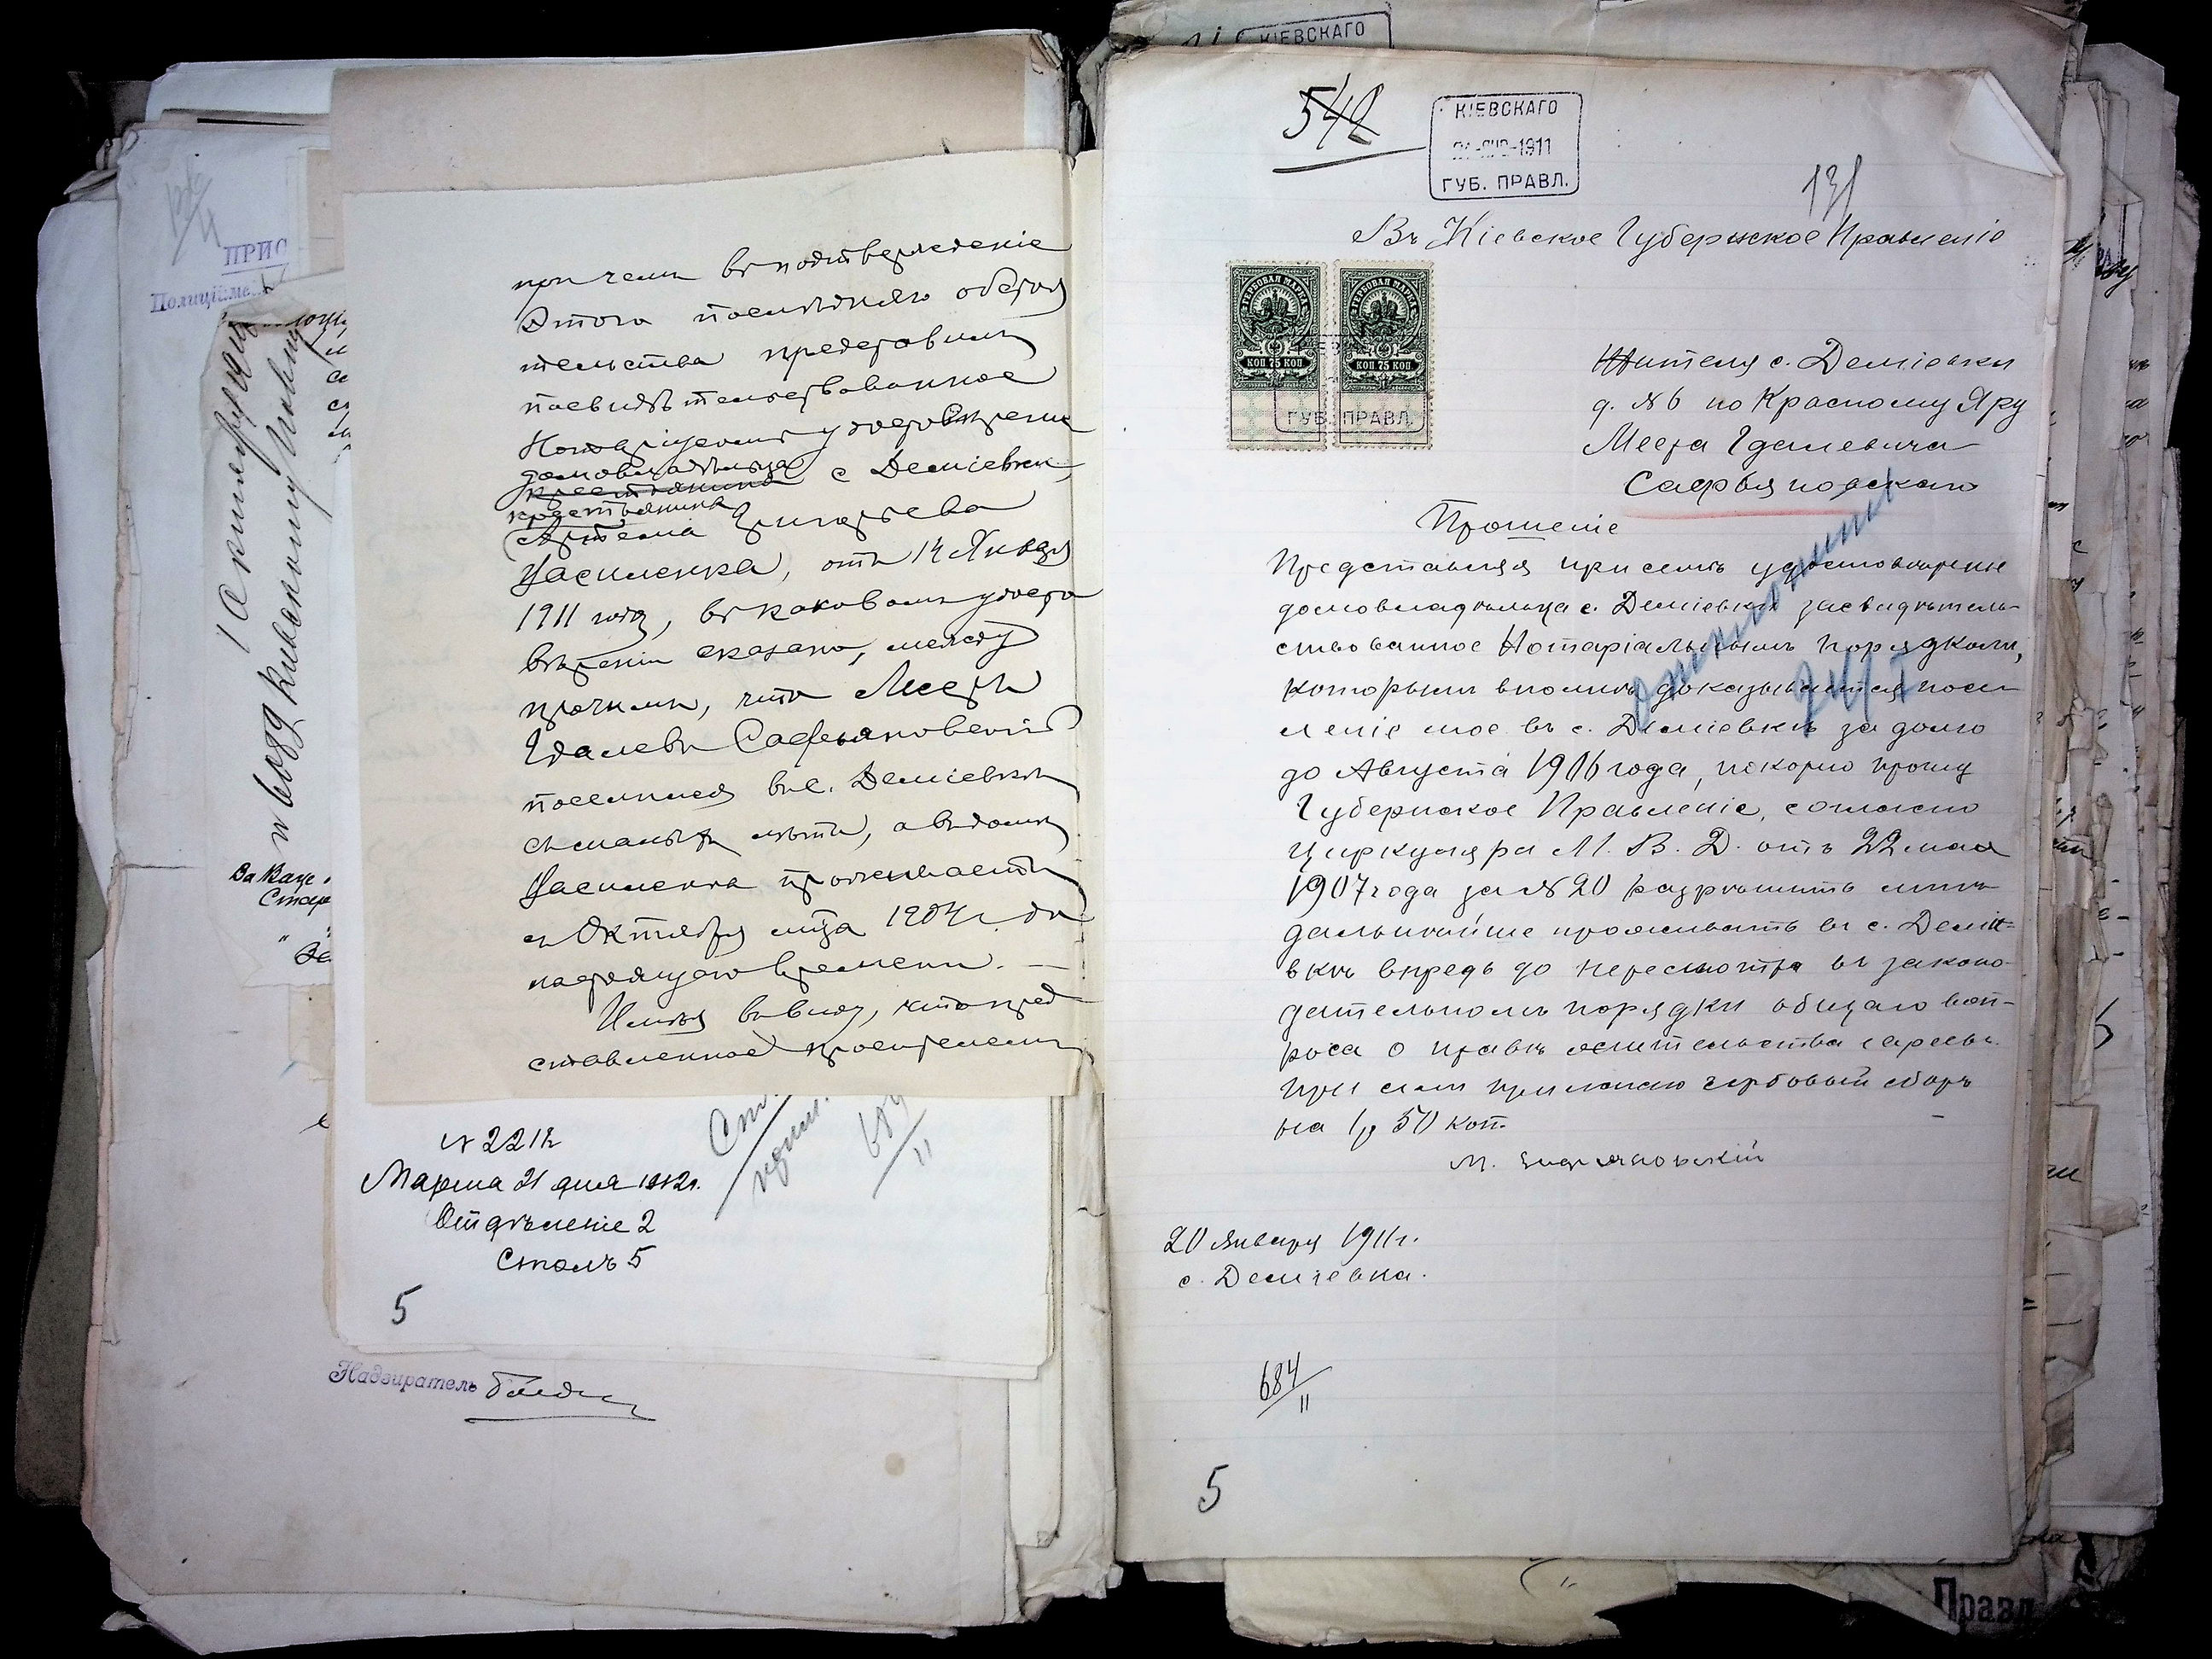 при чемъ въ подтвержденіе
этого послѣдняго обстоя
тельства представилъ
засвидѣтельствованное
Нотаріусомъ удостовѣреніе
домовладѣльца с. Деміевки,
крестьянина
крестьянина
Артема Григорьева
Василенка, отъ 14 Января
1911 года, въ каковомъ удосто
вѣреніи сказано, между
прочимъ, что Мееръ
Гдалевъ Сафьяновскій
поселился въ с. Деміевкѣ
съ малыхъ лѣтъ, а въ домѣ
Василенка проживаетъ
съ Октября мѣсяца 1904 г. до
настоящаго времени. —
Имѣя въ виду, что пред
ставленное просителемъ
№ 2212
Марта 21 дня 1912 г.
Отдѣленіе 2
Столъ 5
684
11
5
Надзиратель
ПРИС
Полиційме
КІЕВСКАГО
542
КІЕВСКАГО
1911
ГУБ. ПРАВЛ.
131
Въ Кіевское Губернское Правленіе
ГЕРБОВАЯ МАРКА
КОП 75 КОП
ГЕРБОВАЯ МАРКА
КОП 75 КОП
ГУБ. ПРАВЛ.
Жителя с. Деміевки
д. № 6 по Красному Яру
Меера Гдалевича
Сафьяновскаго
Прошеніе
Представляя при семъ удостовѣреніе
домовладѣльца с. Деміевки засвидѣтель-
ствованное Нотаріальнымъ порядкомъ,
которымъ вполнѣ доказывается посе
леніе мое въ с. Деміевкѣ задолго
до Августа 1906 года, покорно прошу
Губернское Правленіе, согласно
циркуляра М. В. Д. отъ 22 мая
1907 года за № 20 разрѣшить мнѣ
дальнѣйше проживать въ с. Деміе-
вкѣ впредь до пересмотра въ законо-
дательномъ порядкѣ общаго воп-
роса о правѣ жительства евреевъ.
При семъ прилагаю гербовый сборъ
на 1 р 50 коп.
20 Января 1911 г.
с. Деміевка.
684
11
5
Правл